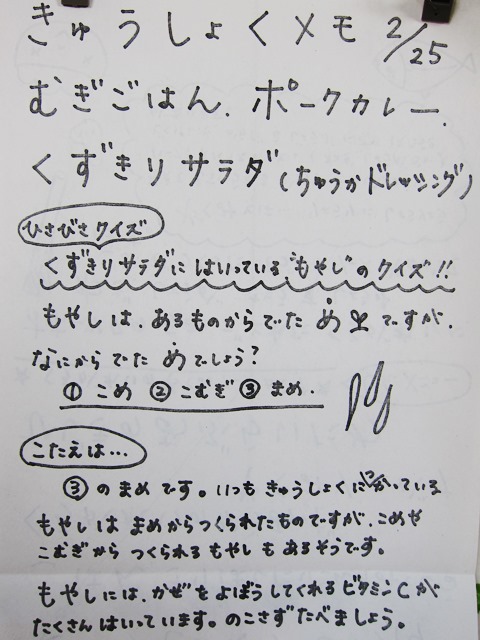 きゅうしょくメモ 2/25
むぎごはん、ポークカレー、
くずきりサラダ(ちゅうかドレッシング)
ひさびさクイズ
くずきりサラダにはいっている"もやし"のクイズ!!
もやしは、あるものからでためですが、
なにからでためでしょう?
① こめ ② こむぎ ③ まめ.
こたえは…
③ のまめです。いつもきゅうしょくにつかっている
もやしはまめからつくられたものですが、こめや
こむぎからつくられるもやしもあるそうです。
もやしには、かぜをよぼうしてくれるビタミンCが
たくさんはいっています。のこさずたべましょう。